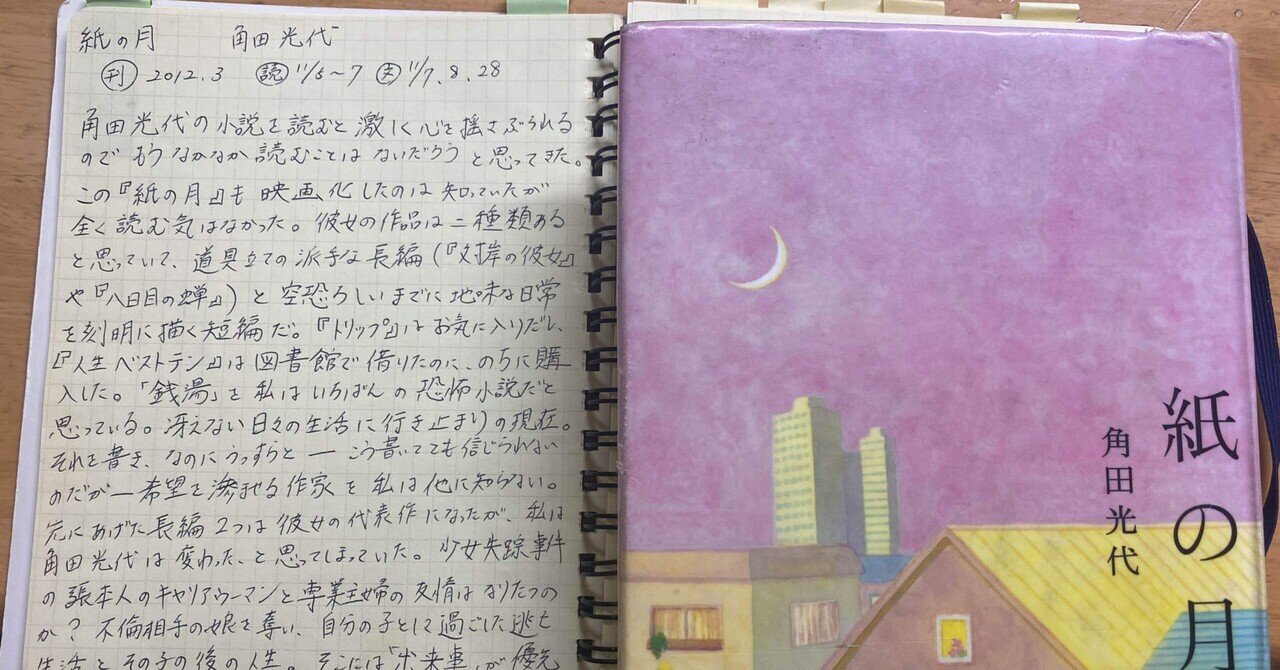 紙の月 角田光代
刊 2012.3 読 11/5〜7 文 11/7.8.28
角田光代の小説を読むと激しく心を揺さぶられる
のでもうなかなか読むことはないだろうと思ってきた。
この『紙の月』も映画化したのは知っていたが
全く読む気はなかった。彼女の作品は二種類ある
と思っていて、道具立ての派手な長編(『対岸の彼女』
や『八日目の蝉』)と空恐ろしいまでに地味な日常
を刻明に描く短編だ。『トリップ』はお気に入りだし、
『人生ベストテン』は図書館で借りたのに、のちに購
入した。「銭湯」を私はいちばんの恐怖小説だと
思っている。冴えない日々の生活に行き止まりの現在。
それを書き、なのにうっすらと ― こう書いてても信じられない
のだが ― 希望を滲ませる作家を私は他に知らない。
先にあげた長編2つは彼女の代表作になったが、私は
角田光代は変わった、と思ってしまっていた。少女失踪事件
の張本人のキャリアウーマンと専業主婦の友情はなりたつの
か? 不倫相手の娘を奪い、自分の子として過ごした逃亡
生活とその子の後の人生。そこには「出来事」が優先
紙の月
角田光代